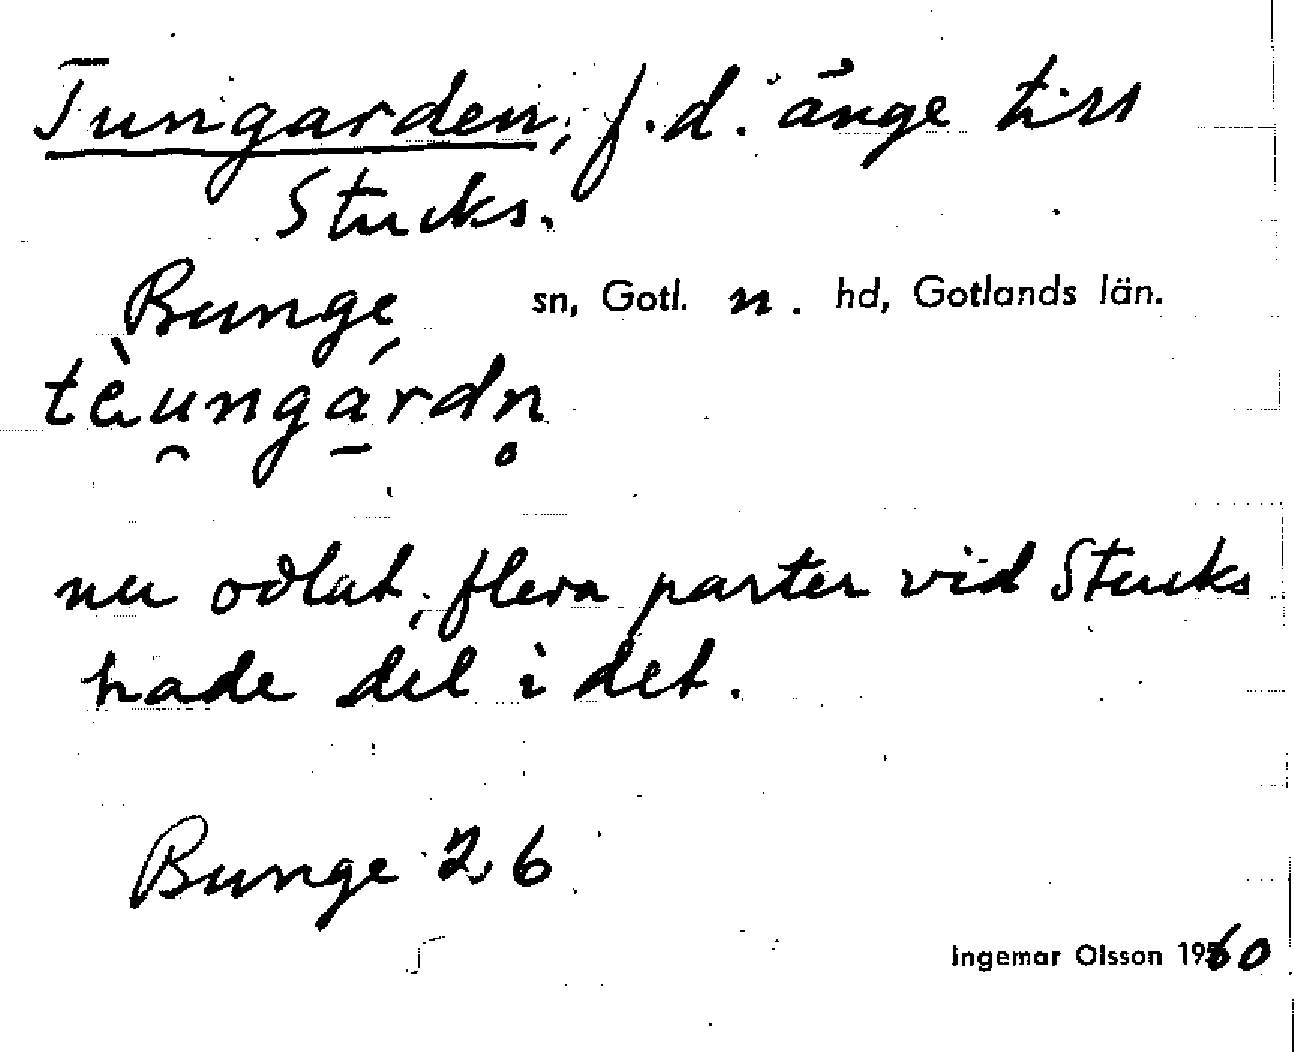 Tungarden, f.d. änge till
Stucks.
Bunge sn, Gotl. n. hd, Gotlands län.
tèu̯ngá̱rdn̥
nu odlat, flera parter vid Stucks
hade del i det.
Bunge 26
Ingemar Olsson 1960